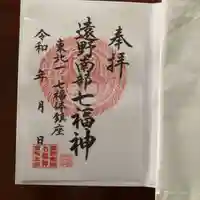 奉拝
遠野南部七福神
東北一 七福 鎮座
令和 年 月 日